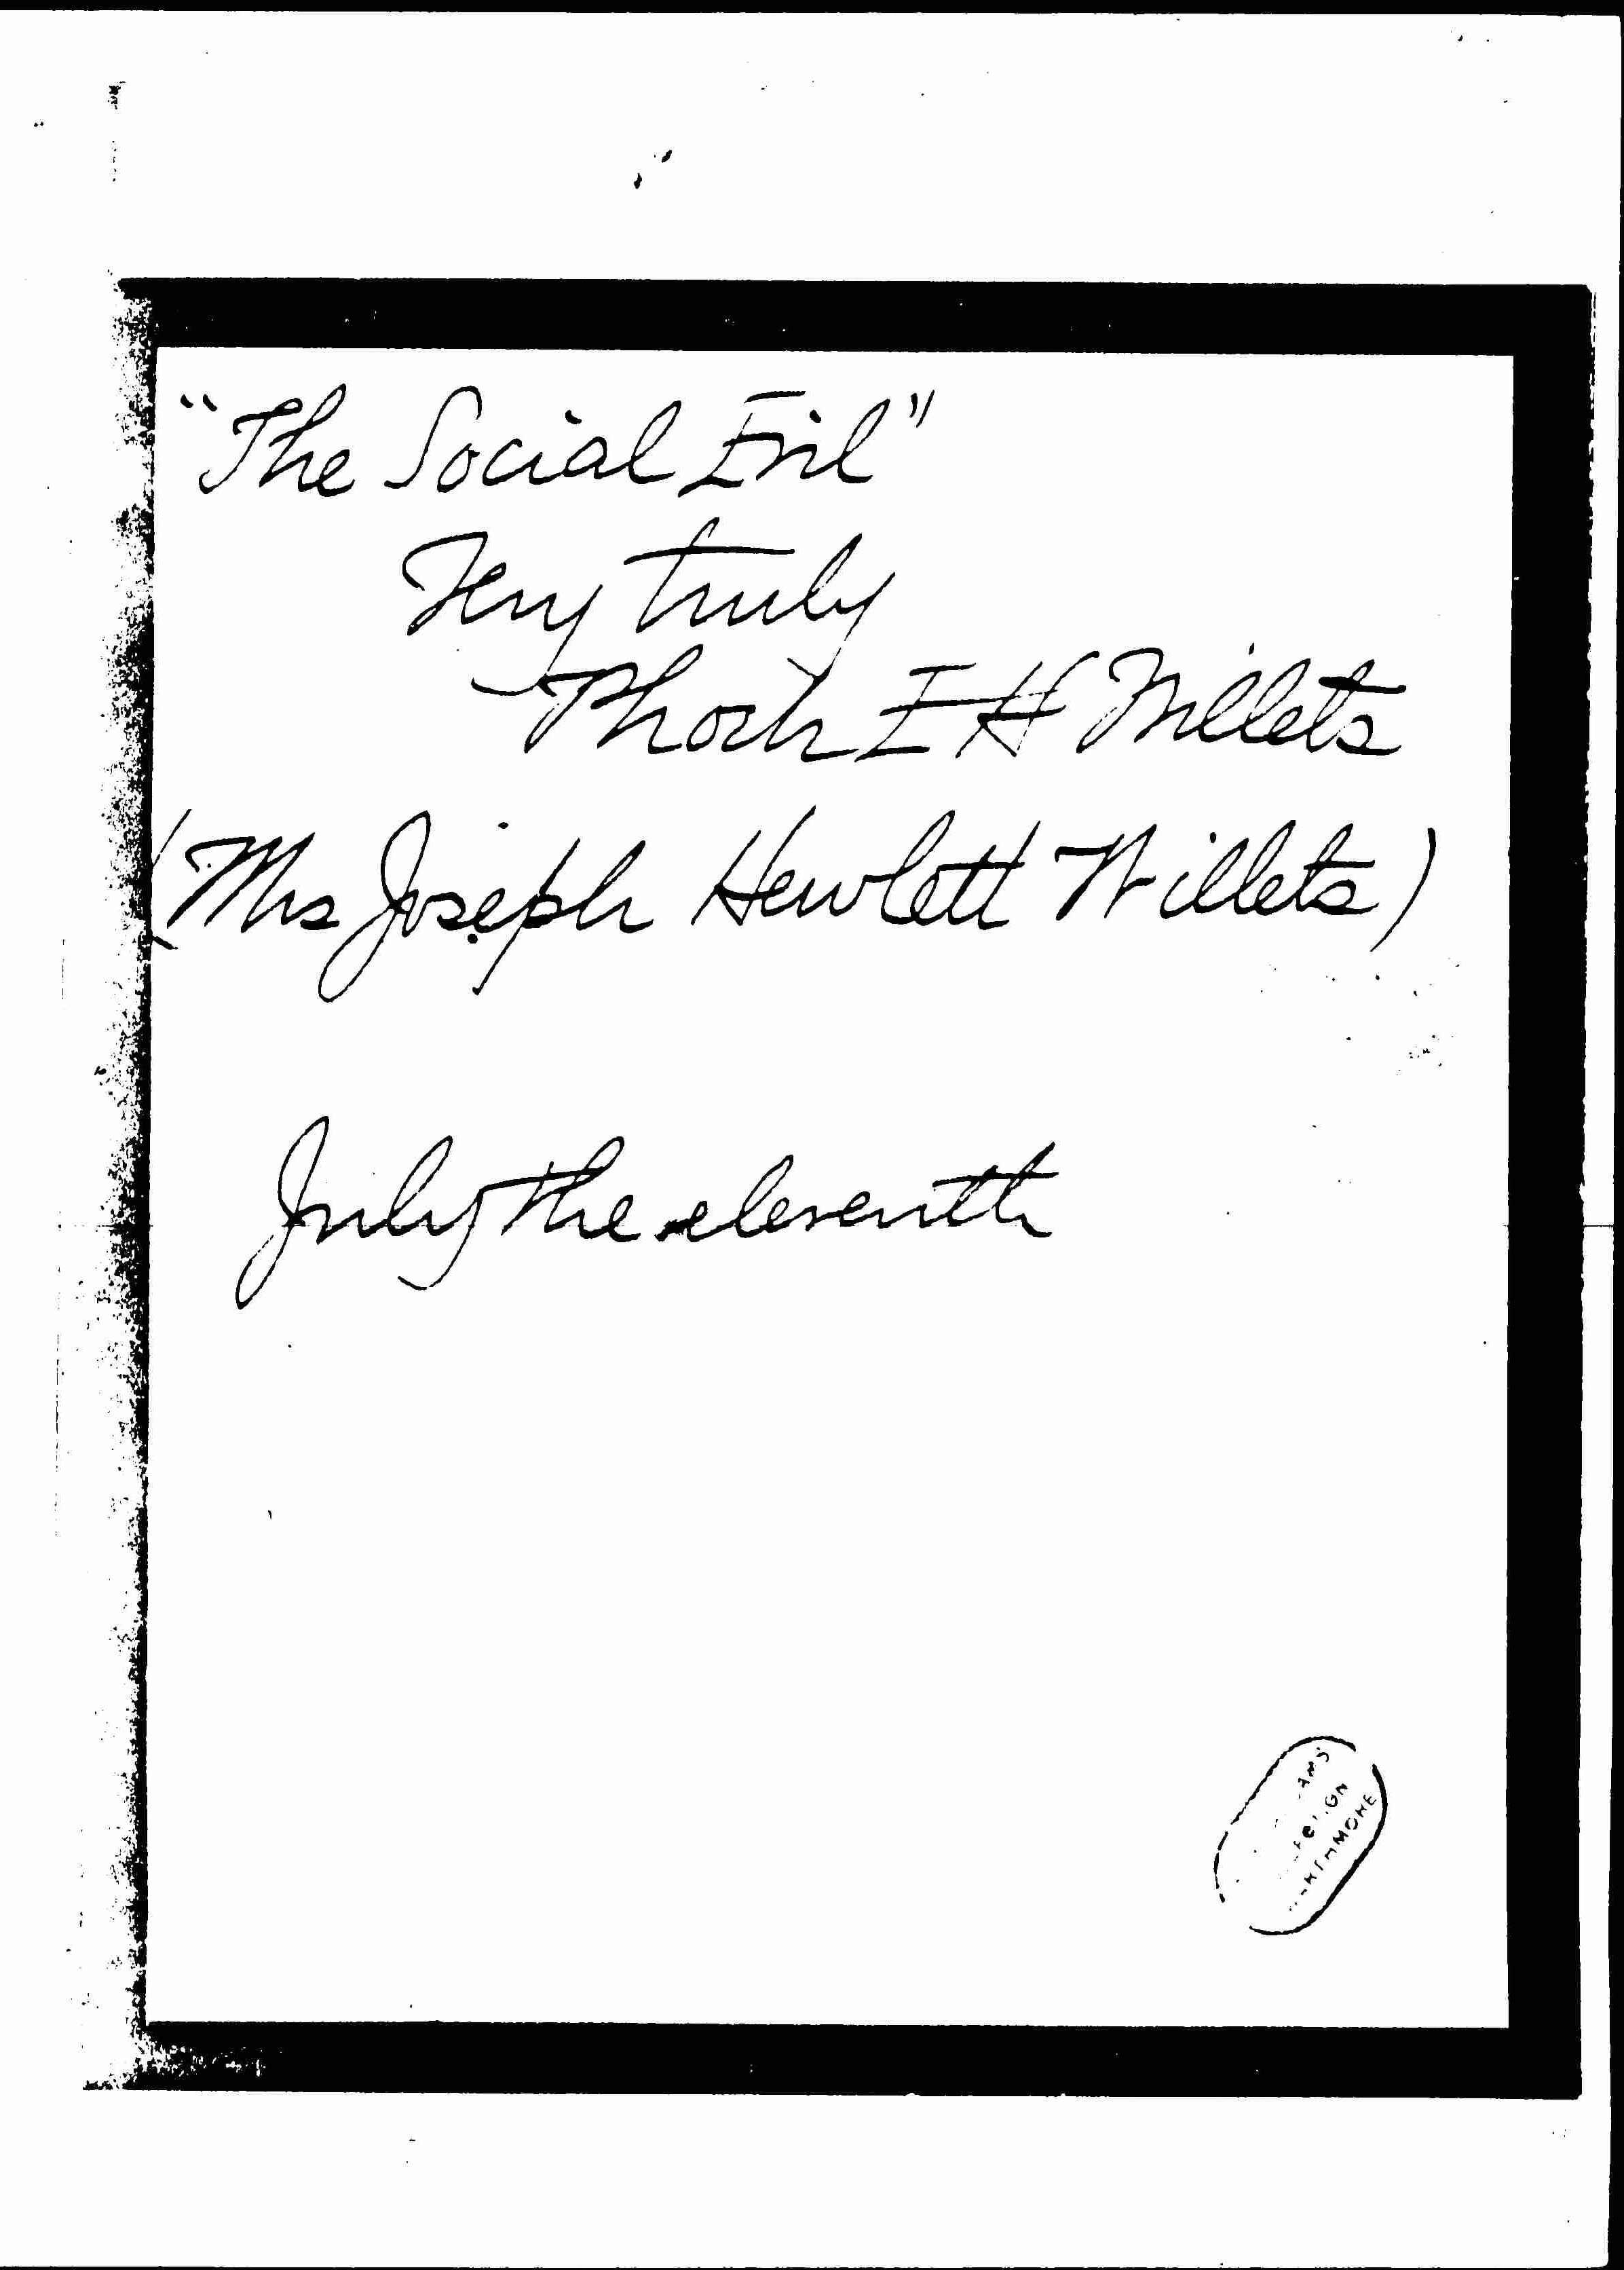 "The Social Evil"
Very truly
Phoebe E H Willets
(Mrs Joseph Hewlett Willets)
July the eleventh